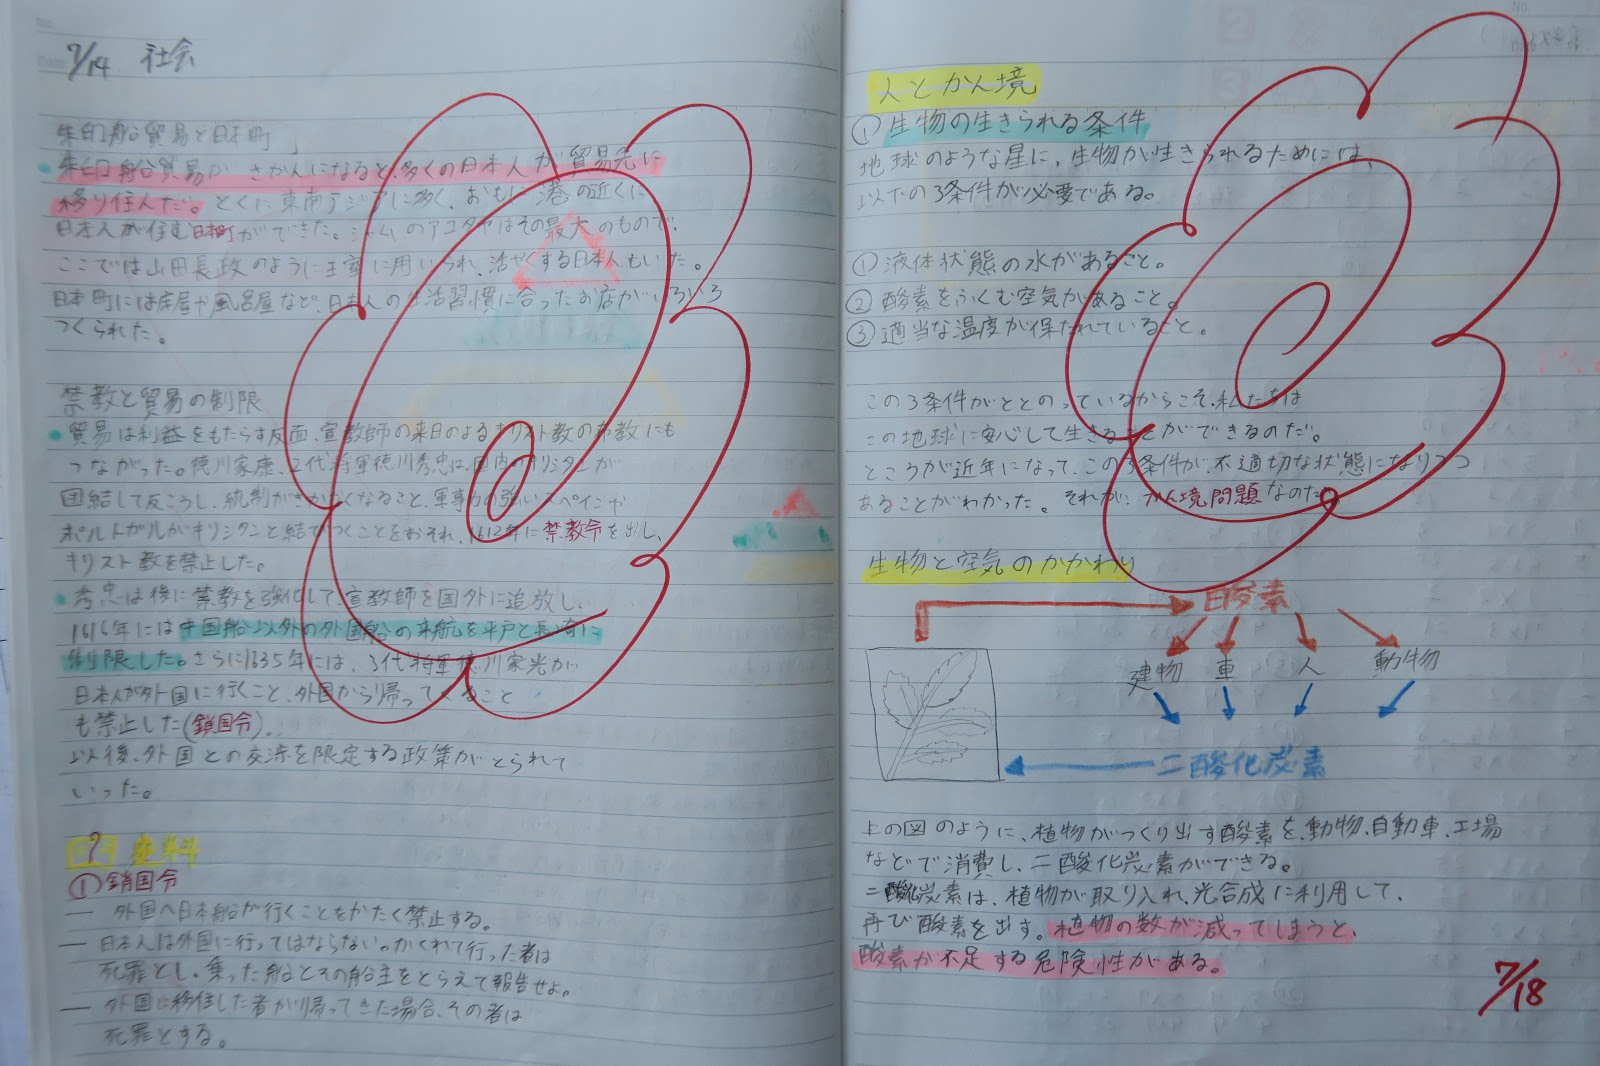 7/14 社会
朱印船貿易と日本町
朱印船貿易がさかんになると、多くの日本人が貿易先に
移り住んだ。とくに東南アジアに多く、おもに港の近くに
日本人が住む日本町ができた。シャムのアユタヤはその最大のもので、
ここでは山田長政のように王室に用いられ、活やくする日本人もいた。
日本町には床屋や風呂屋など、日本人の生活習慣に合ったお店がいろいろ
つくられた。
禁教と貿易の制限
貿易は利益をもたらす反面、宣教師の来日のよるキリスト教の布教にも
つながった。徳川家康、2代将軍徳川秀忠は、国内のキリシタンが
団結して反こうし、統制がきかなくなること、軍事力の強いスペインや
ポルトガルがキリシタンと結びつくことをおそれ、1612年に禁教令を出し、
キリスト教を禁止した。
秀忠は後に禁教を強化して、宣教師を国外に追放し、
1616年には中国船以外の外国船の来航を平戸と長崎に
制限した。さらに1635年には、3代将軍徳川家光が
日本人が外国に行くこと、外国から帰ってくること
も禁止した(鎖国令)。
以後、外国との交渉を限定する政策がとられて
いった。
資料
① 鎖国令
― 外国へ日本船が行くことをかたく禁止する。
― 日本人は外国に行ってはならない。かくれて行った者は
死罪とし、乗った船とその船主をとらえて報告せよ。
― 外国に移住した者が帰ってきた場合、その者は
死罪とする。
人とかん境
① 生物の生きられる条件
地球のような星に、生物が生きられるためには、
以下の3条件が必要である。
① 液体状態の水があること。
② 酸素をふくむ空気があること。
③ 適当な温度が保たれていること。
この3条件がととのっているからこそ、私たちは
この地球に安心して生きることができるのだ。
ところが近年になって、この3条件が、不適切な状態になりつつ
あることがわかった。それが、かん境問題なのだ。
生物と空気のかかわり
酸素
建物 車 人 動物
二酸化炭素
上の図のように、植物がつくり出す酸素を、動物、自動車、工場
などで消費し、二酸化炭素ができる。
二酸化炭素は、植物が取り入れ、光合成に利用して、
再び酸素を出す。植物の数が減ってしまうと、
酸素が不足する危険性がある。
7/18